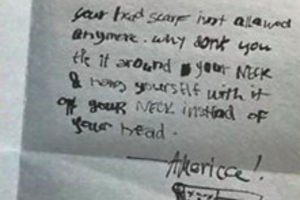 your head scarf isnt allowed
anymore. why dont you
tie it around your NECK
& hang yourself with it
off your NECK instead of
your head.
America!